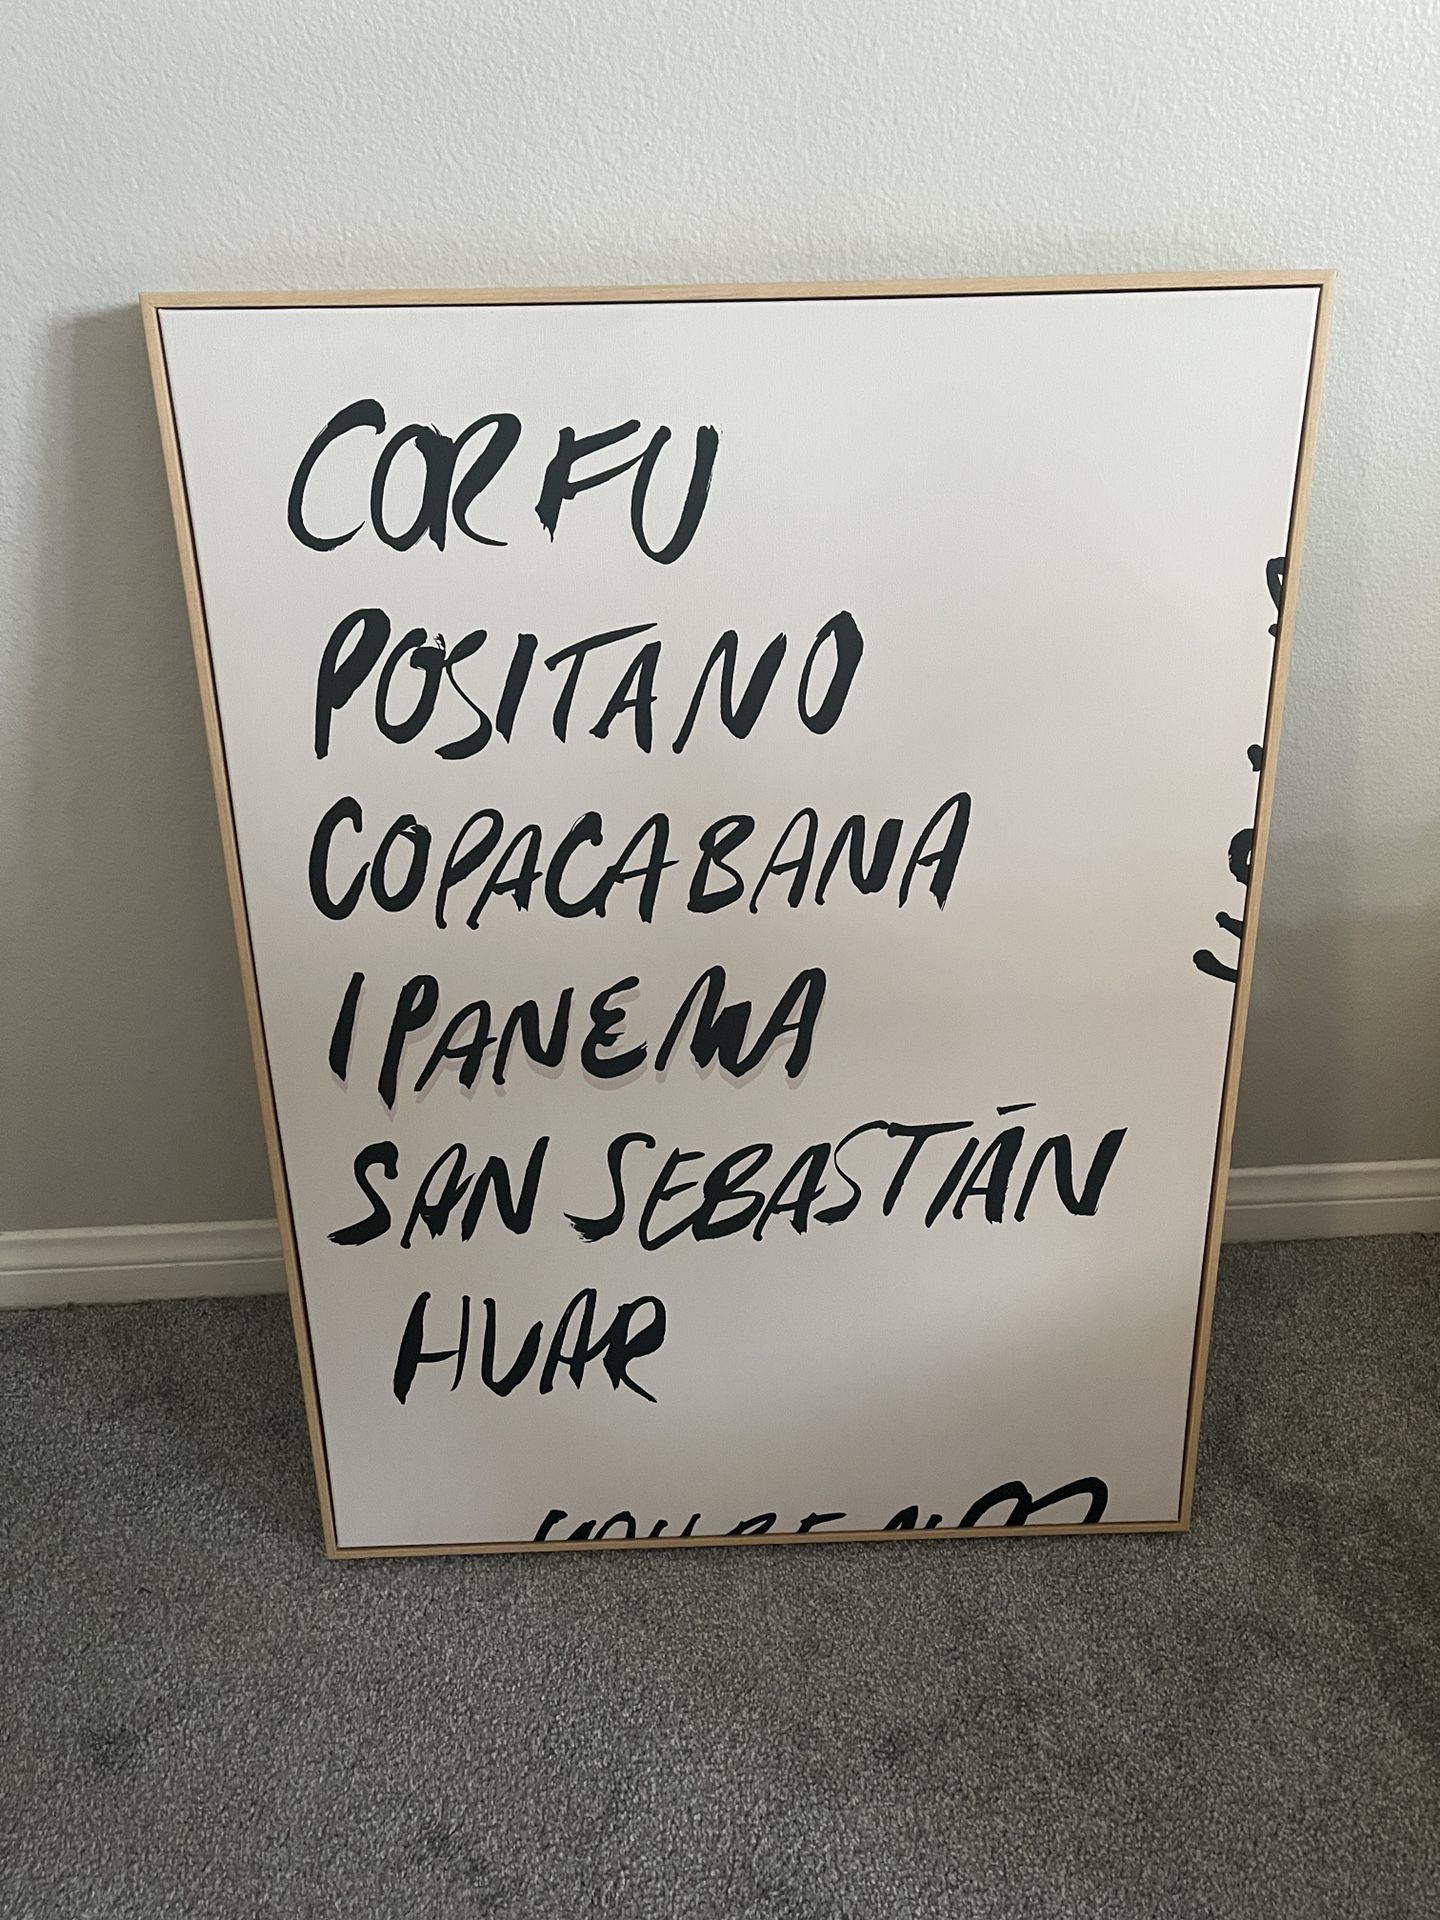 CORFU
POSITANO
COPACABANA
IPANEMA
SAN SEBASTIÁN
HVAR